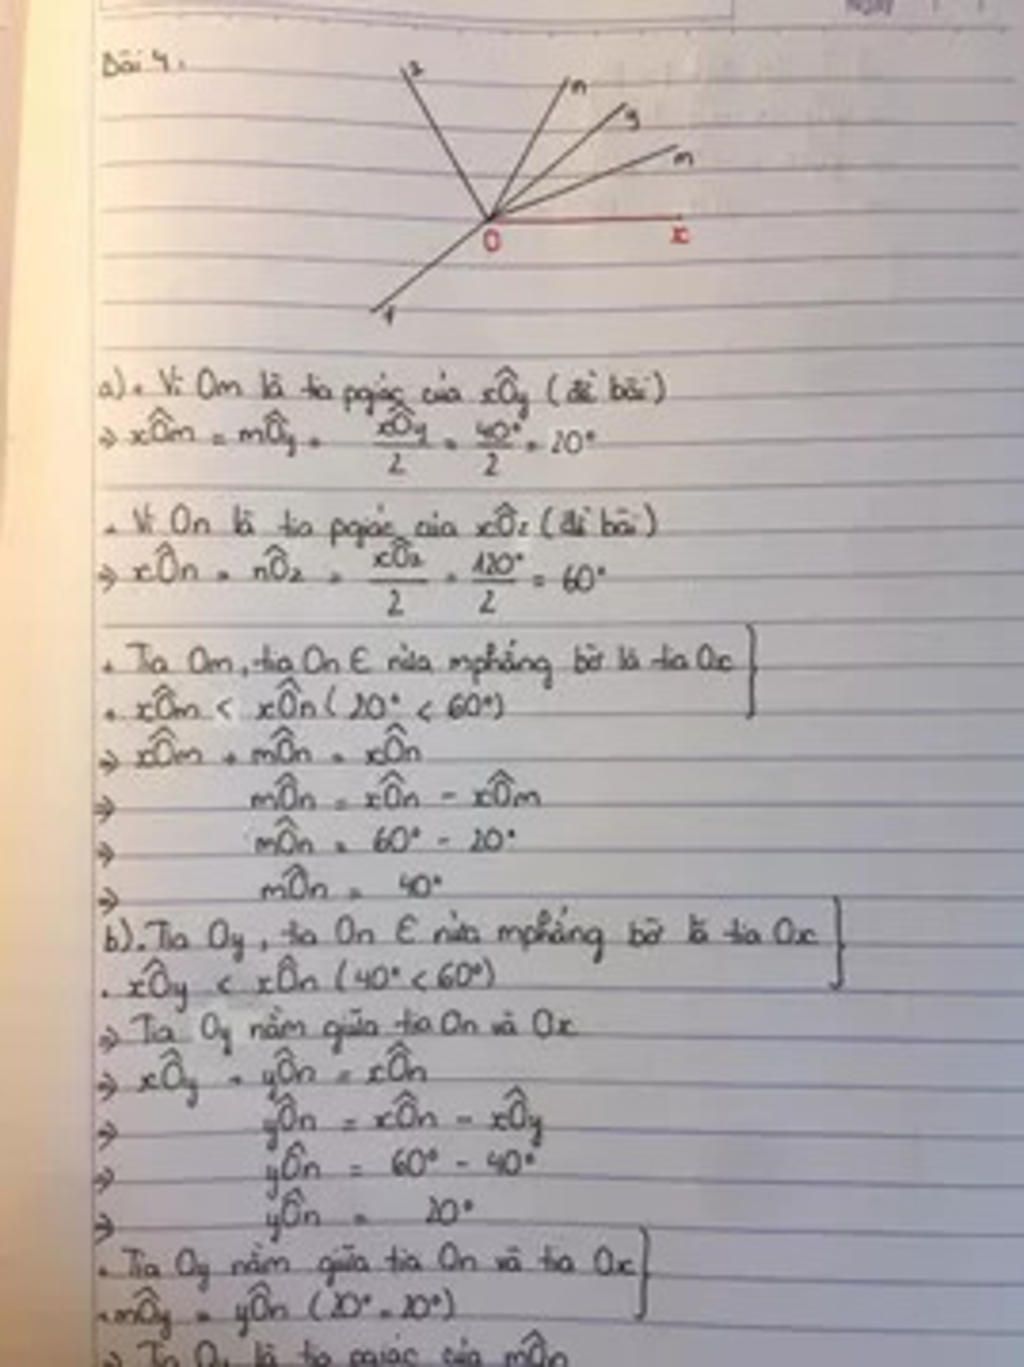 Ngày
Bài 4.
z
n
y
m
O
x
t
a). Vì Om là tia pgiác của xÔy (đề bài)
=> xÔm = mÔy = xÔy/2 = 40°/2 = 20°
. Vì On là tia pgiác của xÔz (đề bài)
=> xÔn = nÔz = xÔz/2 = 120°/2 = 60°
. Tia Om, tia On ∈ nửa mphẳng bờ là tia Ox }
. xÔm < xÔn (20° < 60°)
=> xÔm + mÔn = xÔn
=> mÔn = xÔn - xÔm
=> mÔn = 60° - 20°
=> mÔn = 40°
b). Tia Oy, tia On ∈ nửa mphẳng bờ là tia Ox }
. xÔy < xÔn (40° < 60°)
=> Tia Oy nằm giữa tia On và Ox
=> xÔy + yÔn = xÔn
=> yÔn = xÔn - xÔy
=> yÔn = 60° - 40°
=> yÔn = 20°
. Tia Oy nằm giữa tia On và tia Ox }
. mÔy = yÔn (20° = 20°)
=> Tia Oy là tia pgiác của mÔn